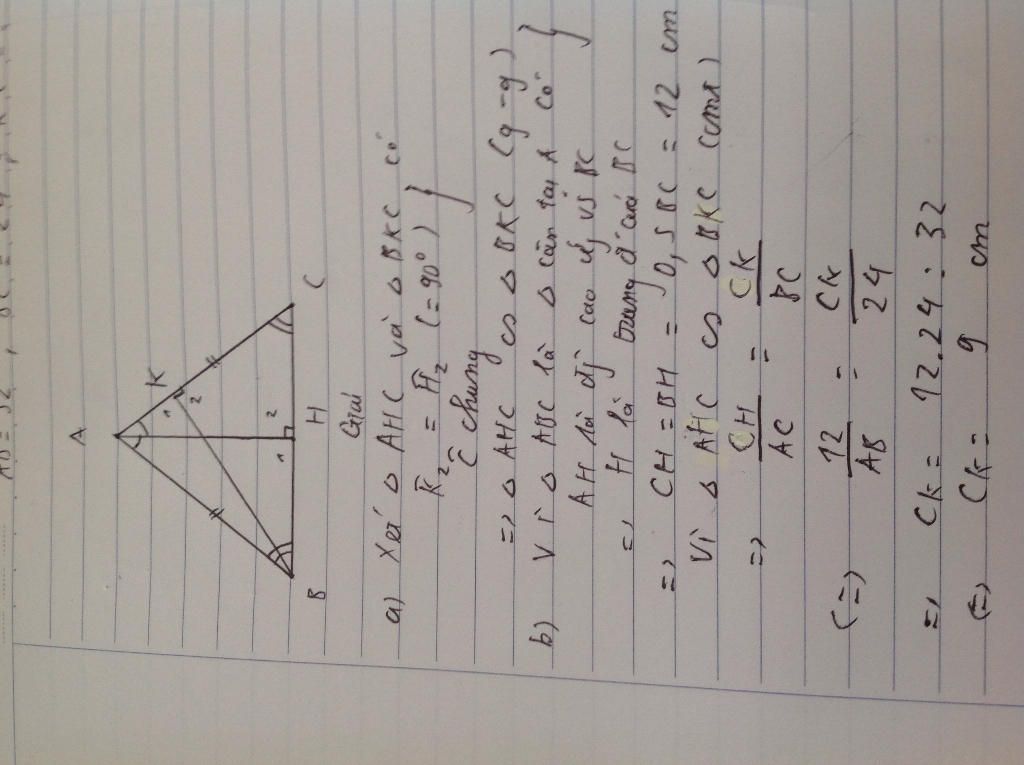 AB = 32, BC = 24
A
K
1
2
1
2
B
H
C
Giải
a) Xét Δ AHC và Δ BKC có
K̂₂ = Ĥ₂ (= 90°) }
Ĉ chung
=> Δ AHC ∽ Δ BKC (g-g)
b) Vì Δ ABC là Δ cân tại A có }
AH là đg cao ưg vs BC
=> H là trung đ' của BC
=> CH = BH = 0,5 BC = 12 cm
Vì Δ AHC ∽ Δ BKC (cmt)
=> CH/AC = CK/BC
(=) 12/AB = CK/24
=> CK = 12.24 : 32
(=) CK = 9 cm